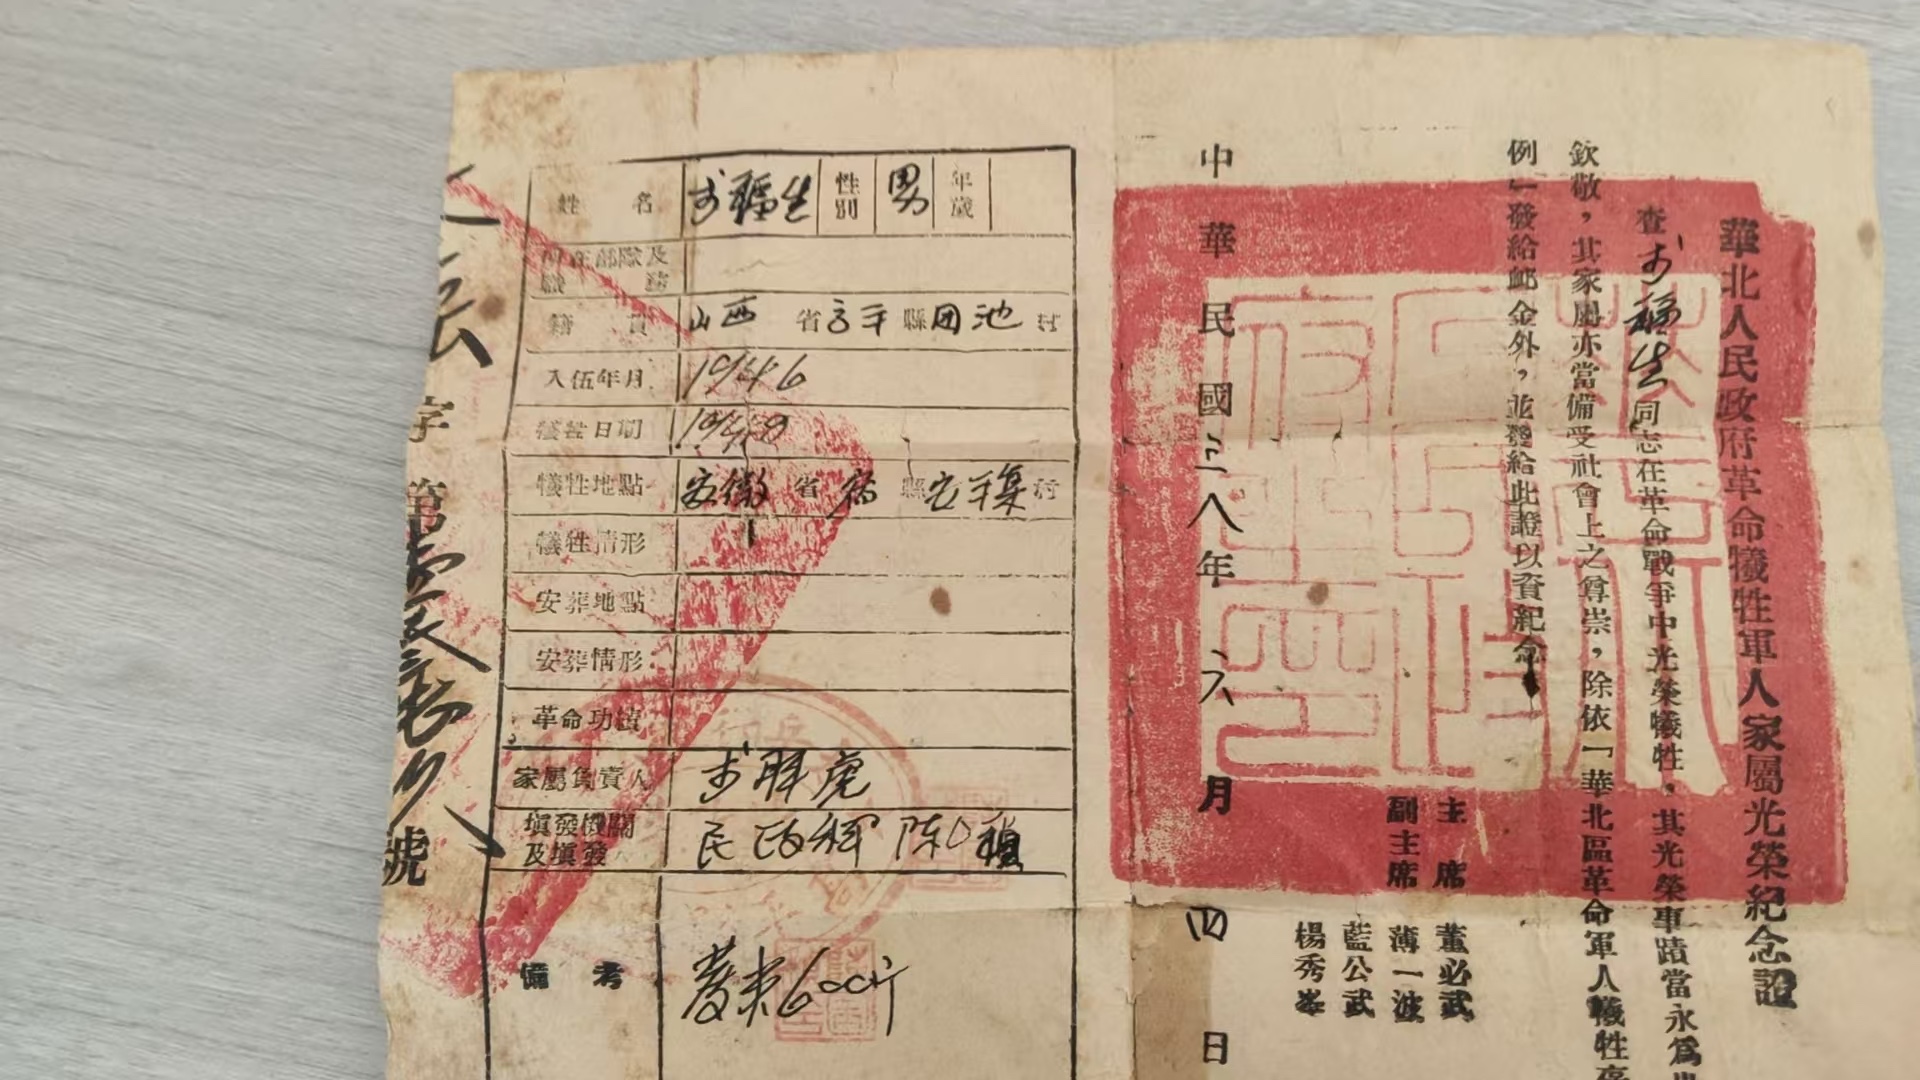 華北人民政府革命犧牲軍人家屬光榮紀念證
查 生同志在革命戰爭中光榮犧牲，其光榮事蹟當永為
欽敬，其家屬亦當備受社會上之尊崇，除依「華北區革命軍人犧牲
例」發給卹金外，並發給此證以資紀念
主席 董必武
副主席 薄一波
藍公武
楊秀峯
中華民國三八年六月四日
姓名 生 性別 男 年歲
所在部隊及職務
籍貫 山西省高平縣团池村
入伍年月 1946
犧牲日期
犧牲地點 安徽省宿縣安平集村
犧牲情形
安葬地點
安葬情形
革命功績
家屬負責人 虎
填發機關及填發 民政科 陈
備考 发米600斤
字第 號